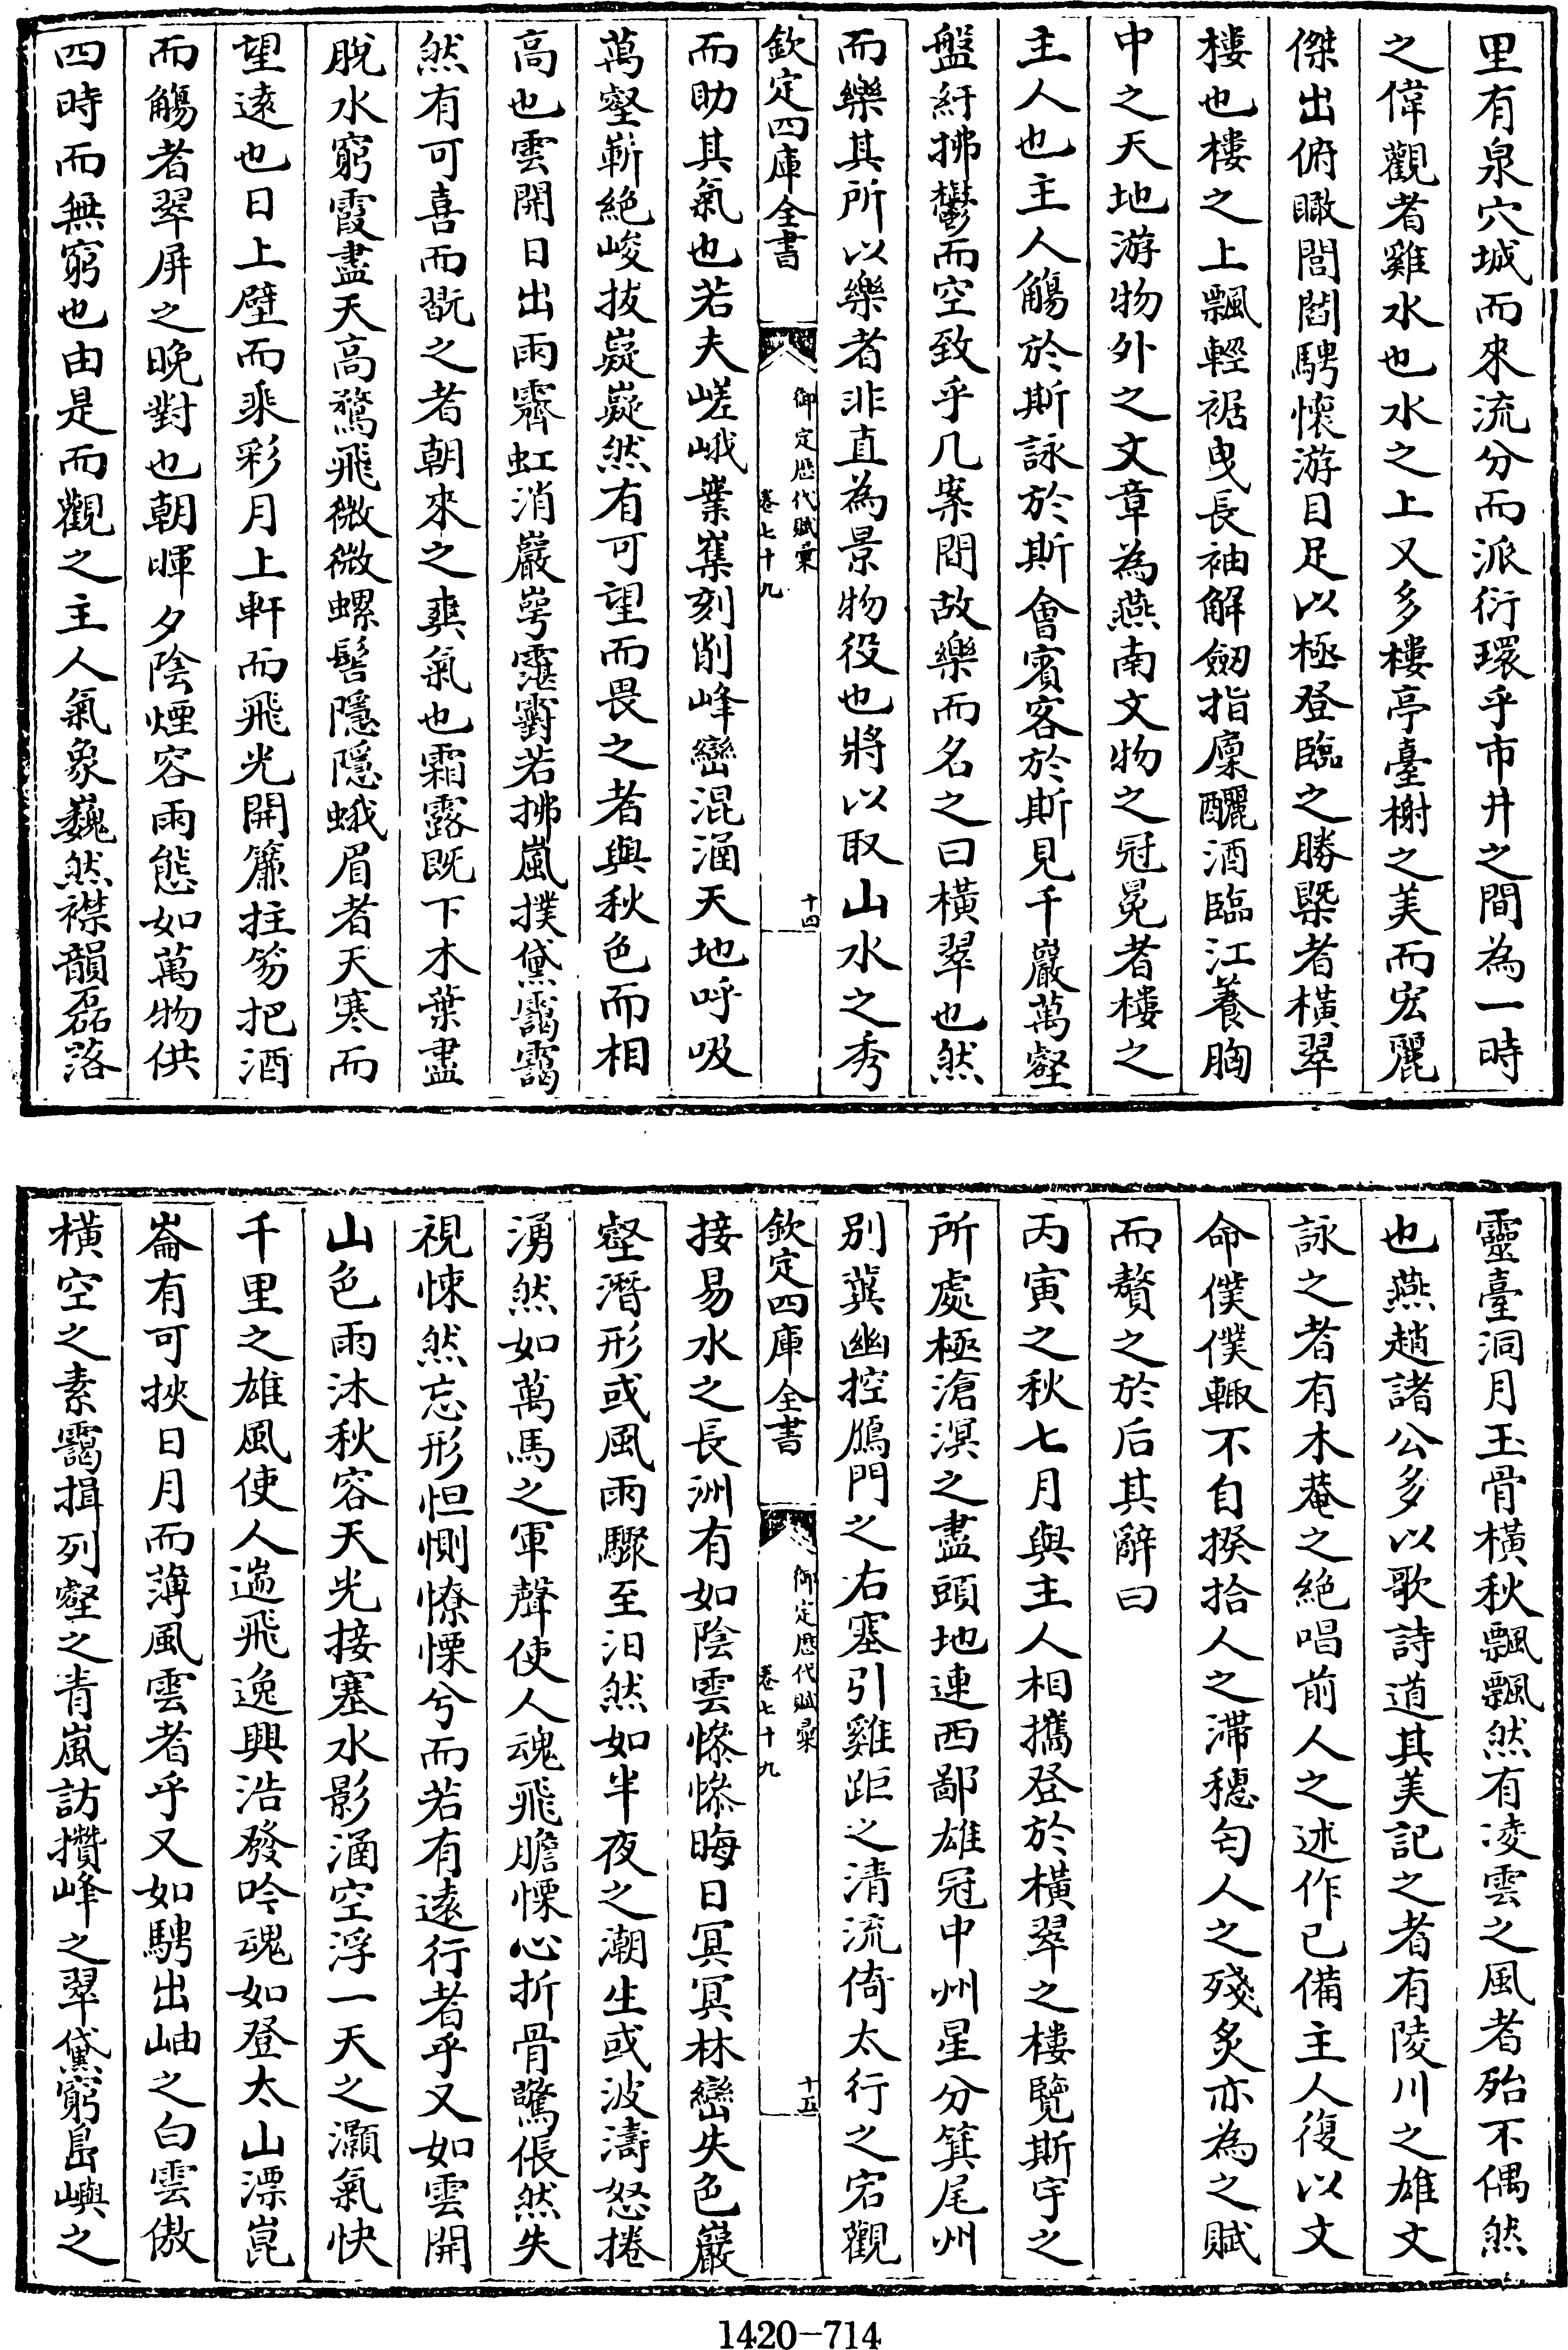 里有泉穴城而來流分而派衍環乎市井之間為一時
之偉觀者雞水也水之上又多樓亭臺榭之美而宏麗
傑出俯瞰閭閻騁懷游目足以極登臨之勝槩者橫翠
樓也樓之上飄輕裾曳長袖解劒指廩釃酒臨江養胸
中之天地游物外之文章為燕南文物之冠冕者樓之
主人也主人觴於斯詠於斯會賓客於斯見千巖萬壑
盤紆拂鬱而空致乎几案間故樂而名之曰橫翠也然
而樂其所以樂者非直為景物役也將以取山水之秀
欽定四庫全書
御定歷代賦彙
卷七十九
十四
而助其氣也若夫嵯峨嶪嶫刻削峰巒混涵天地呼吸
萬壑嶄絶峻拔嶷嶷然有可望而畏之者與秋色而相
高也雲開日出雨霽虹消巖崿靄霨若拂嵐撲黛靄靄
然有可喜而翫之者朝來之爽氣也霜露既下木葉盡
脫水窮霞盡天高鶩飛微微螺髻隱隱蛾眉者天寒而
望遠也日上壁而乘彩月上軒而飛光開簾拄笏把酒
而觴者翠屏之晚對也朝暉夕陰煙容雨態如萬物供
四時而無窮也由是而觀之主人氣象巍然襟韻磊落
靈臺洞月玉骨橫秋飄飄然有凌雲之風者殆不偶然
也燕趙諸公多以歌詩道其美記之者有陵川之雄文
詠之者有木菴之絶唱前人之述作已備主人復以文
命僕僕輒不自揆拾人之滯穗匄人之殘炙亦為之賦
而贅之於后其辭曰
丙寅之秋七月與主人相攜登於橫翠之樓覽斯宇之
所處極滄溟之盡頭地連西鄙雄冠中州星分箕尾州
別冀幽控鴈門之右塞引雞距之清流倚太行之宕觀
欽定四庫全書
御定歷代賦彙
卷七十九
十五
接易水之長洲有如陰雲慘慘晦日冥冥林巒失色巖
壑潛形或風雨驟至汨然如半夜之潮生或波濤怒捲
湧然如萬馬之軍聲使人魂飛膽慄心折骨驚倀然失
視悚然忘形怛惻憭慄兮而若有遠行者乎又如雲開
山色雨沐秋容天光接塞水影涵空浮一天之灝氣快
千里之雄風使人遄飛逸興浩發吟魂如登太山漂崑
崙有可挾日月而薄風雲者乎又如騁出岫之白雲傲
橫空之素靄揖列壑之青嵐訪攢峰之翠黛窮島嶼之
1420-714